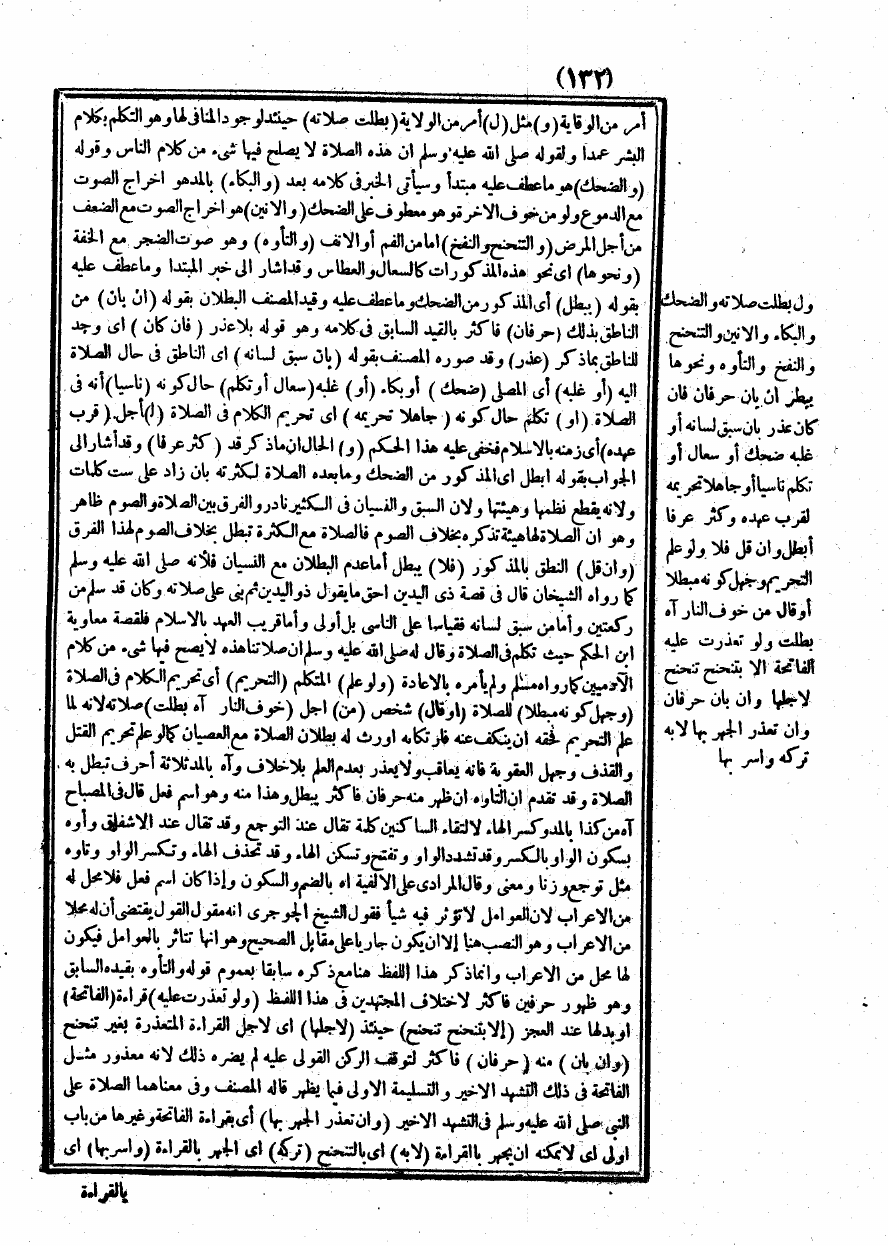 (١٣٢)
أمر من الوقاية (و) مثل (ل) أمر من الولاية (بطلت صلاته) حينئذ لوجود المنافى لها وهو التكلم بكلام
البشر عمدا ولقوله صلى الله عليه وسلم ان هذه الصلاة لا يصلح فيها شىء من كلام الناس وقوله
(والضحك) هو ما عطف عليه مبتدأ وسيأتى الخبر فى كلامه بعد (والبكاء) بالمد هو اخراج الصوت
مع الدموع ولو من خوف الاخرة وهو معطوف على الضحك (والانين) هو اخراج الصوت مع الضعف
من أجل المرض (والتنحنح والنفخ) اما من الفم أو الانف (والتأوه) وهو صوت الضجر مع الخفة
(ونحوها) اى نحو هذه المذكورات كالسعال والعطاس وقد اشار الى خبر المبتدا وما عطف عليه
بقوله (يبطل) أى المذكور من الضحك وما عطف عليه وقيد المصنف البطلان بقوله (ان بان) من
الناطق بذلك (حرفان) فاكثر بالقيد السابق فى كلامه وهو قوله بلا عذر (فان كان) اى وجد
للناطق بما ذكر (عذر) وقد صوره المصنف بقوله (بان سبق لسانه) اى الناطق فى حال الصلاة
اليه (أو غلبه) أى المصلى (ضحك) أو بكاء (أو) غلبه (سعال أو تكلم) حال كونه (ناسيا) أنه فى
الصلاة (او) تكلم حال كونه (جاهلا تحريمه) اى تحريم الكلام فى الصلاة (ل) أجل (قرب
عهده) أى زمنه بالاسلام فخفى عليه هذا الحكم (و) الحال ان ماذكر قد (كثر عرفا) وقد أشار الى
الجواب بقوله ابطل اى المذكور من الضحك وما بعده الصلاة لكثرته بان زاد على ست كلمات
ولانه يقطع نظمها وهيئتها ولان السبق والنسيان فى الكثير نادر والفرق بين الصلاة والصوم ظاهر
وهو ان الصلاة لها هيئة تذكره بخلاف الصوم فالصلاة مع الكثرة تبطل بخلاف الصوم لهذا الفرق
(وان قل) النطق بالمذكور (فلا) يبطل أما عدم البطلان مع النسيان فلأنه صلى الله عليه وسلم
كما رواه الشيخان قال فى قصة ذى اليدين احق ما يقول ذو اليدين ثم بنى على صلاته وكان قد سلم من
ركعتين وأما من سبق لسانه فقياسا على الناسى بل أولى وأما قريب العهد بالاسلام فلقصة معاوية
ابن الحكم حيث تكلم فى الصلاة وقال له صلى الله عليه وسلم ان صلاتنا هذه لا يصح فيها شىء من كلام
الآدميين كما رواه مسلم ولم يأمره بالاعادة (ولو علم) المتكلم (التحريم) أى تحريم الكلام فى الصلاة
(وجهل كونه مبطلا) للصلاة (او قال) شخص (من) اجل (خوف النار آه بطلت) صلاته لانه لما
علم التحريم فحقه ان ينكف عنه فارتكابه اورث له بطلان الصلاة مع العصيان كما لو علم تحريم القتل
والقذف وجهل العقوبة فانه يعاقب ولا يعذر بعدم العلم بلا خلاف وآه بالمد ثلاثة أحرف تبطل به
الصلاة وقد تقدم ان التاوه ان ظهر منه حرفان فاكثر يبطل وهذا منه وهو اسم فعل قال فى المصباح
آه من كذا بالمد وكسر الهاء لالتقاء الساكنين كلمة تقال عند التوجع وقد تقال عند الاشفاق وأوه
بسكون الواو بالكسر وقد تشدد الواو وتفتح وتسكن الهاء وقد تحذف الهاء وتكسر الواو وتاوه
مثل توجع وزنا ومعنى وقال المرادى على الالفية اه بالضم والسكون وإذا كان اسم فعل فلا محل له
من الاعراب لان العوامل لا تؤثر فيه شيأ فقول الشيخ الجوجرى انه مقول القول يقتضى أن له محلا
من الاعراب وهو النصب هنا إلا ان يكون جاريا على مقابل الصحيح وهو انها تتاثر بالعوامل فيكون
لها محل من الاعراب وانما ذكر هذا اللفظ هنا مع ذكره سابقا بعموم قوله والتأوه بقيده السابق
وهو ظهور حرفين فاكثر لاختلاف المجتهدين فى هذا اللفظ (ولو تعذرت عليه) قراءة (الفاتحة)
او بدلها عند العجز (إلا بتنحنح تنحنح) حينئذ (لاجلها) اى لاجل القراءة المتعذرة بغير تنحنح
(وان بان) منه (حرفان) فاكثر لتوقف الركن القولى عليه لم يضره ذلك لانه معذور مثل
الفاتحة فى ذلك التشهد الاخير والتسليمة الاولى فيما يظهر قاله المصنف وفى معناهما الصلاة على
النبى صلى الله عليه وسلم فى التشهد الاخير (وان تعذر الجهر بها) أى بقراءة الفاتحة وغيرها من باب
اولى اى لا يمكنه ان يجهر بالقراءة (لا به) اى بالتنحنح (تركه) اى الجهر بالقراءة (واسر بها) اى
بالقراءة
ول بطلت صلاته والضحك
والبكاء والانين والتنحنح
والنفخ والتأوه ونحوها
يبطر ان بان حرفان فان
كان عذر بان سبق لسانه أو
غلبه ضحك أو سعال أو
تكلم ناسيا أو جاهلا تحريمه
لقرب عهده وكثر عرفا
أبطل وان قل فلا ولو علم
التحريم وجهل كونه مبطلا
أو قال من خوف النار آه
بطلت ولو تعذرت عليه
الفاتحة الا بتنحنح تنحنح
لاجلها وان بان حرفان
وان تعذر الجهر بها لا به
تركه واسر بها